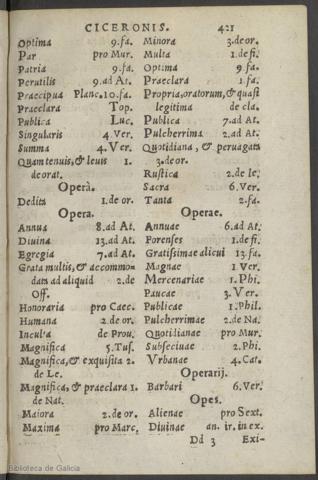 CICERONIS. 421
Optima 9.fa.
Par pro Mur.
Patria 9.fa.
Perutilis 9.ad At.
Praecipua Planc.10.fa.
Praeclara Top.
Publica Luc.
Singularis 4.Ver.
Summa 4.Ver.
Quam tenuis, & leuis 1.
de orat.
Operà.
Dedita 1.de or.
Opera.
Annua 8.ad At.
Diuina 13.ad At.
Egregia 7.ad At.
Grata multis, & accommo-
data ad aliquid 2.de
Off.
Honoraria pro Caec.
Humana 2.de or.
Inculta de Prou.
Magnifica 5.Tus.
Magnifica, & exquisita 2.
de Le.
Magnifica, & praeclara 1.
de Nat.
Maiora 2.de or.
Maxima pro Marc.
Minora 3.de or.
Multa 1.de fi.
Optima 9.fa.
Praeclara 1.fa.
Propria, oratorum, & quasi
legitima de cla.
Publica 7.ad At.
Pulcherrima 2.ad At.
Quotidiana, & peruagata
3.de or.
Rustica 2.de le.
Sacra 6.Ver.
Tanta 2.fa.
Operae.
Annuae 6.ad At.
Forenses 1.de fi.
Gratissimae alicui 13.fa.
Magnae 1 Ver.
Mercenariae 1.Phi.
Paucae 3.Ver.
Publicae 1.Phil.
Pulcherrimae 2.de Na.
Quotidianae pro Mur.
Subseciuae 2.Phi.
Vrbanae 4.Cat.
Operarij.
Barbari 6.Ver.
Opes.
Alienae pro Sext.
Diuinae an. ir.in ex.
Dd 3 Exi-
Biblioteca de Galicia